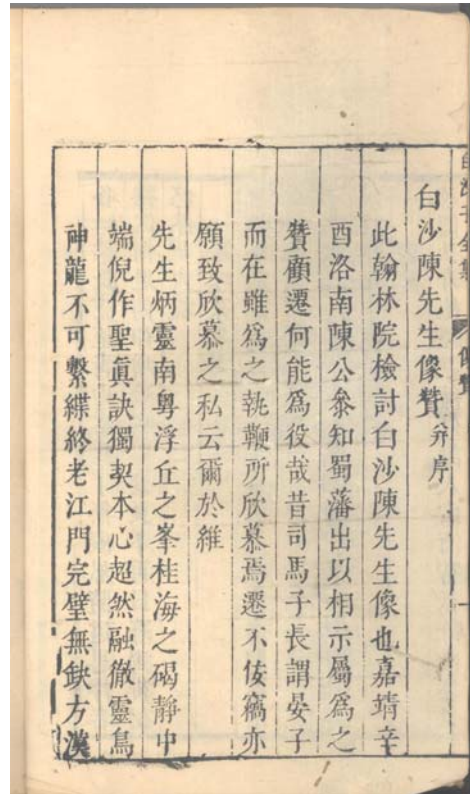 白沙陳先生像贊 并序
此翰林院檢討白沙陳先生像也嘉靖辛
酉洛南陳公叅知蜀藩出以相示屬爲之
贊顧遷何能爲役哉昔司馬子長謂晏子
而在雖爲之執鞭所欣慕焉遷不佞竊亦
願致欣慕之私云爾於維
先生炳靈南粤浮丘之峯桂海之碣靜中
端倪作聖眞訣獨契本心超然融徹靈鳥
神龍不可繫緤終老江門完璧無缺方漢